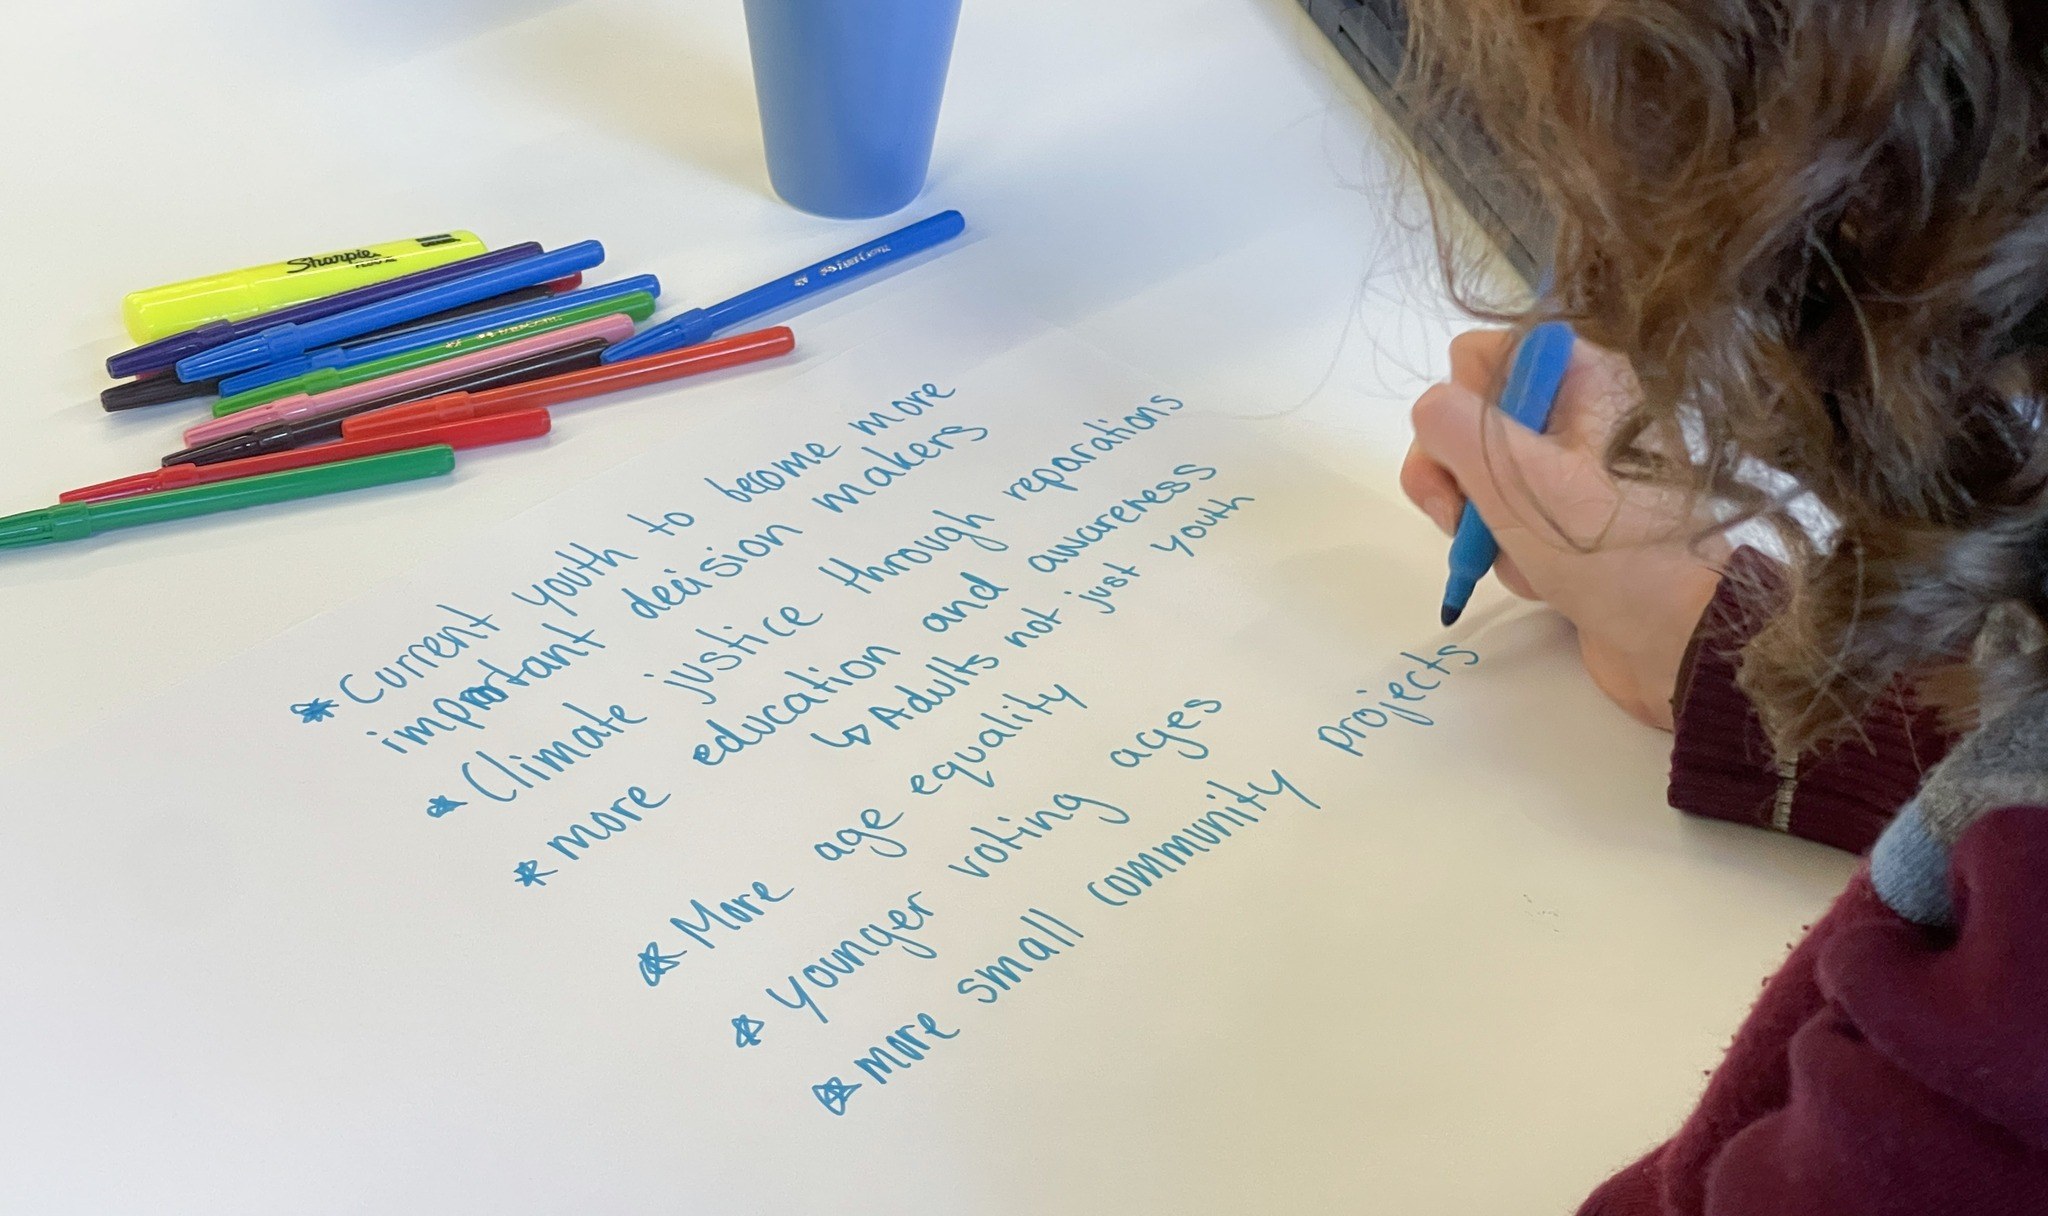 Sharpie
* Current youth to become more
important decision makers
* Climate justice through reparations
* more education and awareness
↳ Adults not just youth
* More age equality
* Younger voting ages
* more small community projects